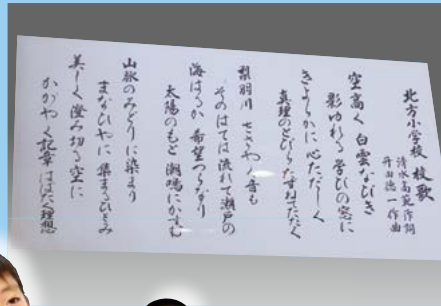 北方小学校 校歌
清水高範 作詞
丹田徳一 作曲
空高く 白雲なびき
影ゆれる 学びの窓に
きよらかに 心ただしく
真理のとびら たずねてたたく
梨羽川 せゝらぐ音も
そのはては 流れて瀬戸の
海はるか 希望つらなり
太陽のもと 潮鳴にかすむ
山脈のみどりに染まり
まなびやに 集まるひとみ
美しく 澄み切る空に
かがやく記章 はばたく理想